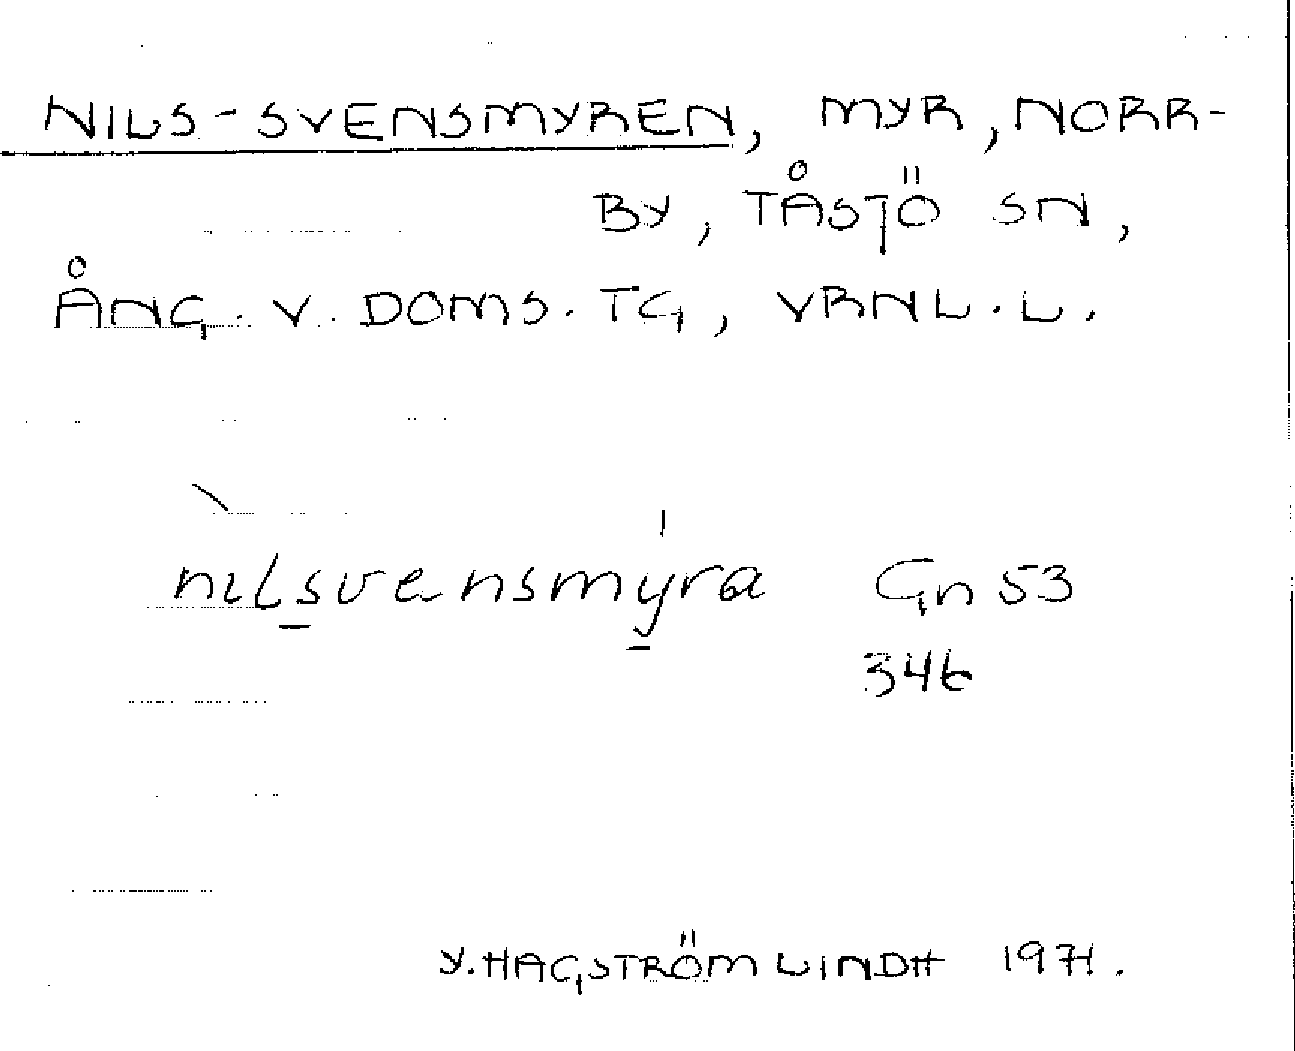 NILS-SVENSMYREN, MYR, NORR-
BY, TÅSJÖ SN,
ÅNG. V. DOMS. TG, VRNL. L.
nɩlsvensmyra Gn 53
346
Y. HAGSTRÖM LINDH 1971.